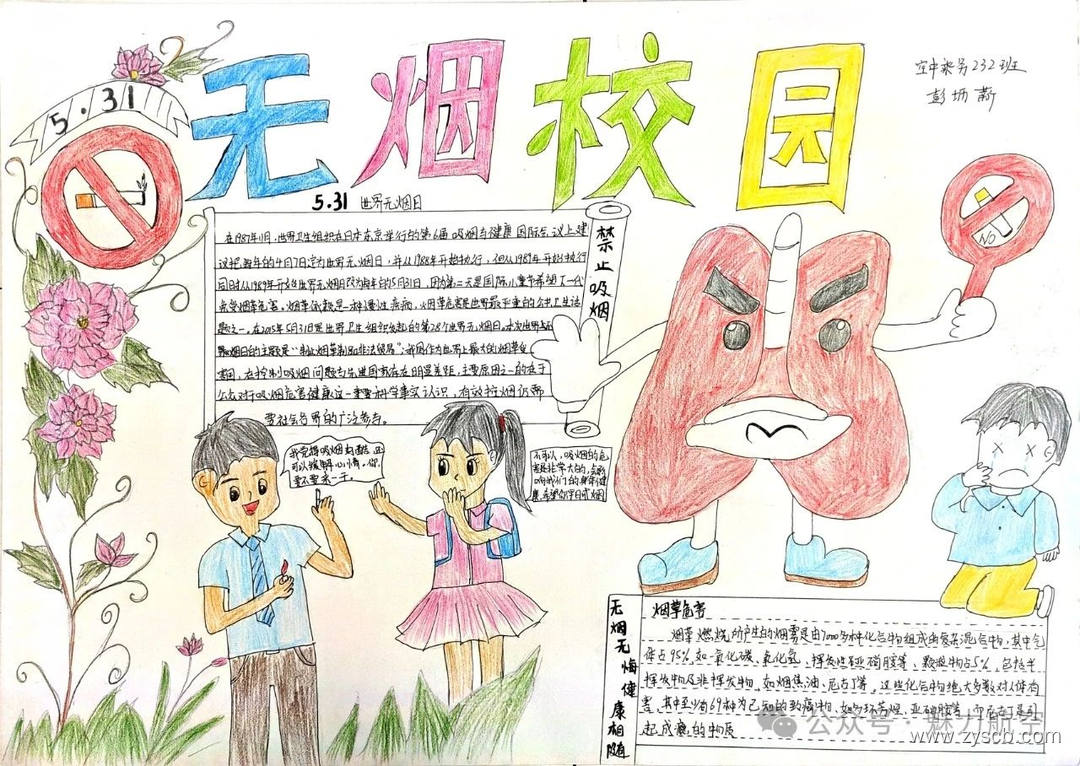 5.31
无烟校园
空中乘务232班
5.31 世界无烟日
在1987年11月,世界卫生组织在日本东京举行的第6届吸烟与健康国际会议上建
议把每年的4月7日定为世界无烟日,并从1988年开始执行,但从1989年开始执行
因为第二天是国际儿童节希望下一代
免受烟草危害。烟草依赖是一种慢性疾病,烟草危害是世界最严重的公共卫生话
题之一。在2015年5月31日是世界卫生组织发起的第28个世界无烟日。
无烟日的主题是“制止烟草制品非法贸易”;我国作为世界上最大的烟草
害国,在控制吸烟问题与先进国家存在明显差距,主要原因之一的在于
公众对于吸烟危害健康这一重要科学事实认识,有效控烟仍需
要社会各界的广泛参与。
禁止吸烟
NO
我觉得吸烟超酷,还
可以缓解心情。你
要不要来一干。
不可以,吸烟的危
害是非常大的,会影
响我们的身体健
康,希望你早日戒烟
无烟无悔健康相随
烟草危害
烟草燃烧所产生的烟雾是由7000多种化合物组成的复杂混合物,其中气
体占95%,如一氧化碳、氰化氢、挥发性亚硝胺等、颗粒物占5%,包括半
挥发物及非挥发物,如烟焦油、尼古丁等。这些化合物绝大多数对人体有
害,其中至少有69种为已知的致癌物,如多环芳烃、亚硝胺等,而尼古丁是引
起成瘾的物质
公众号·魅力航空
www.zyscb.com